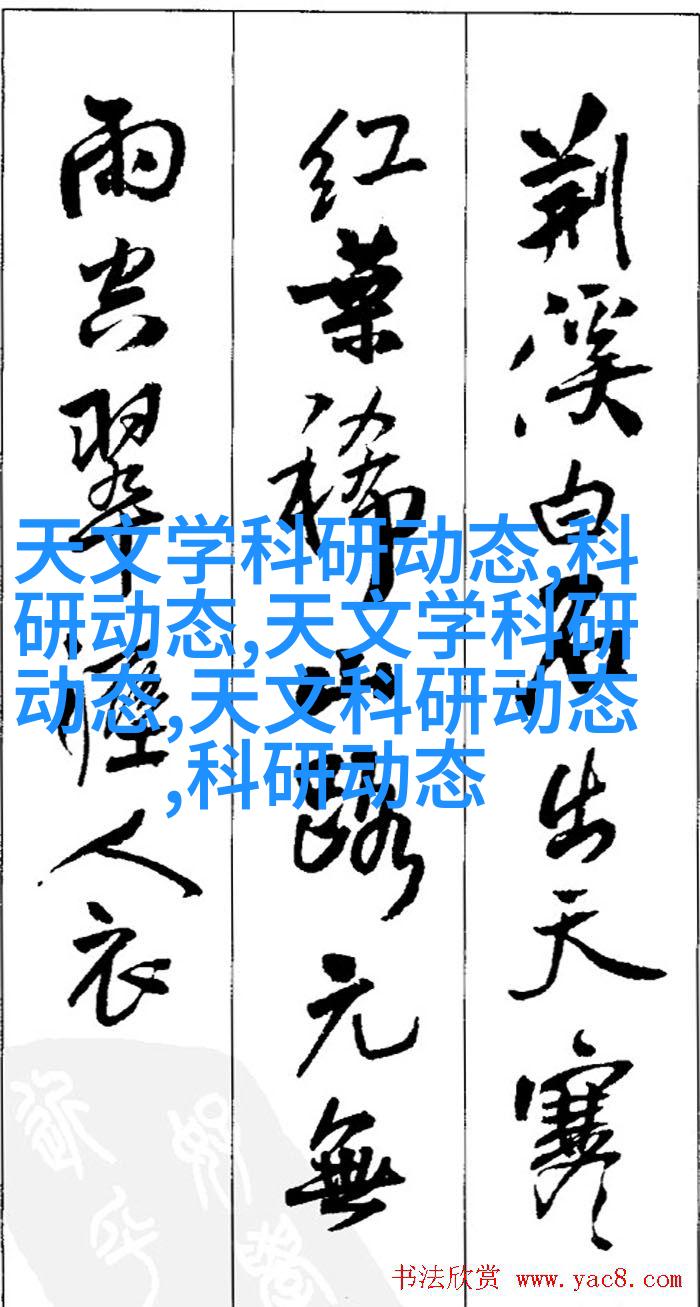 荆溪白石出天寒
红葉稀山路元無
雨空翠濕人衣
天文学科研动态,科
研动态,天文学科研
动态,天文科研动态
,科研动态
书法欣赏 www.yac8.com